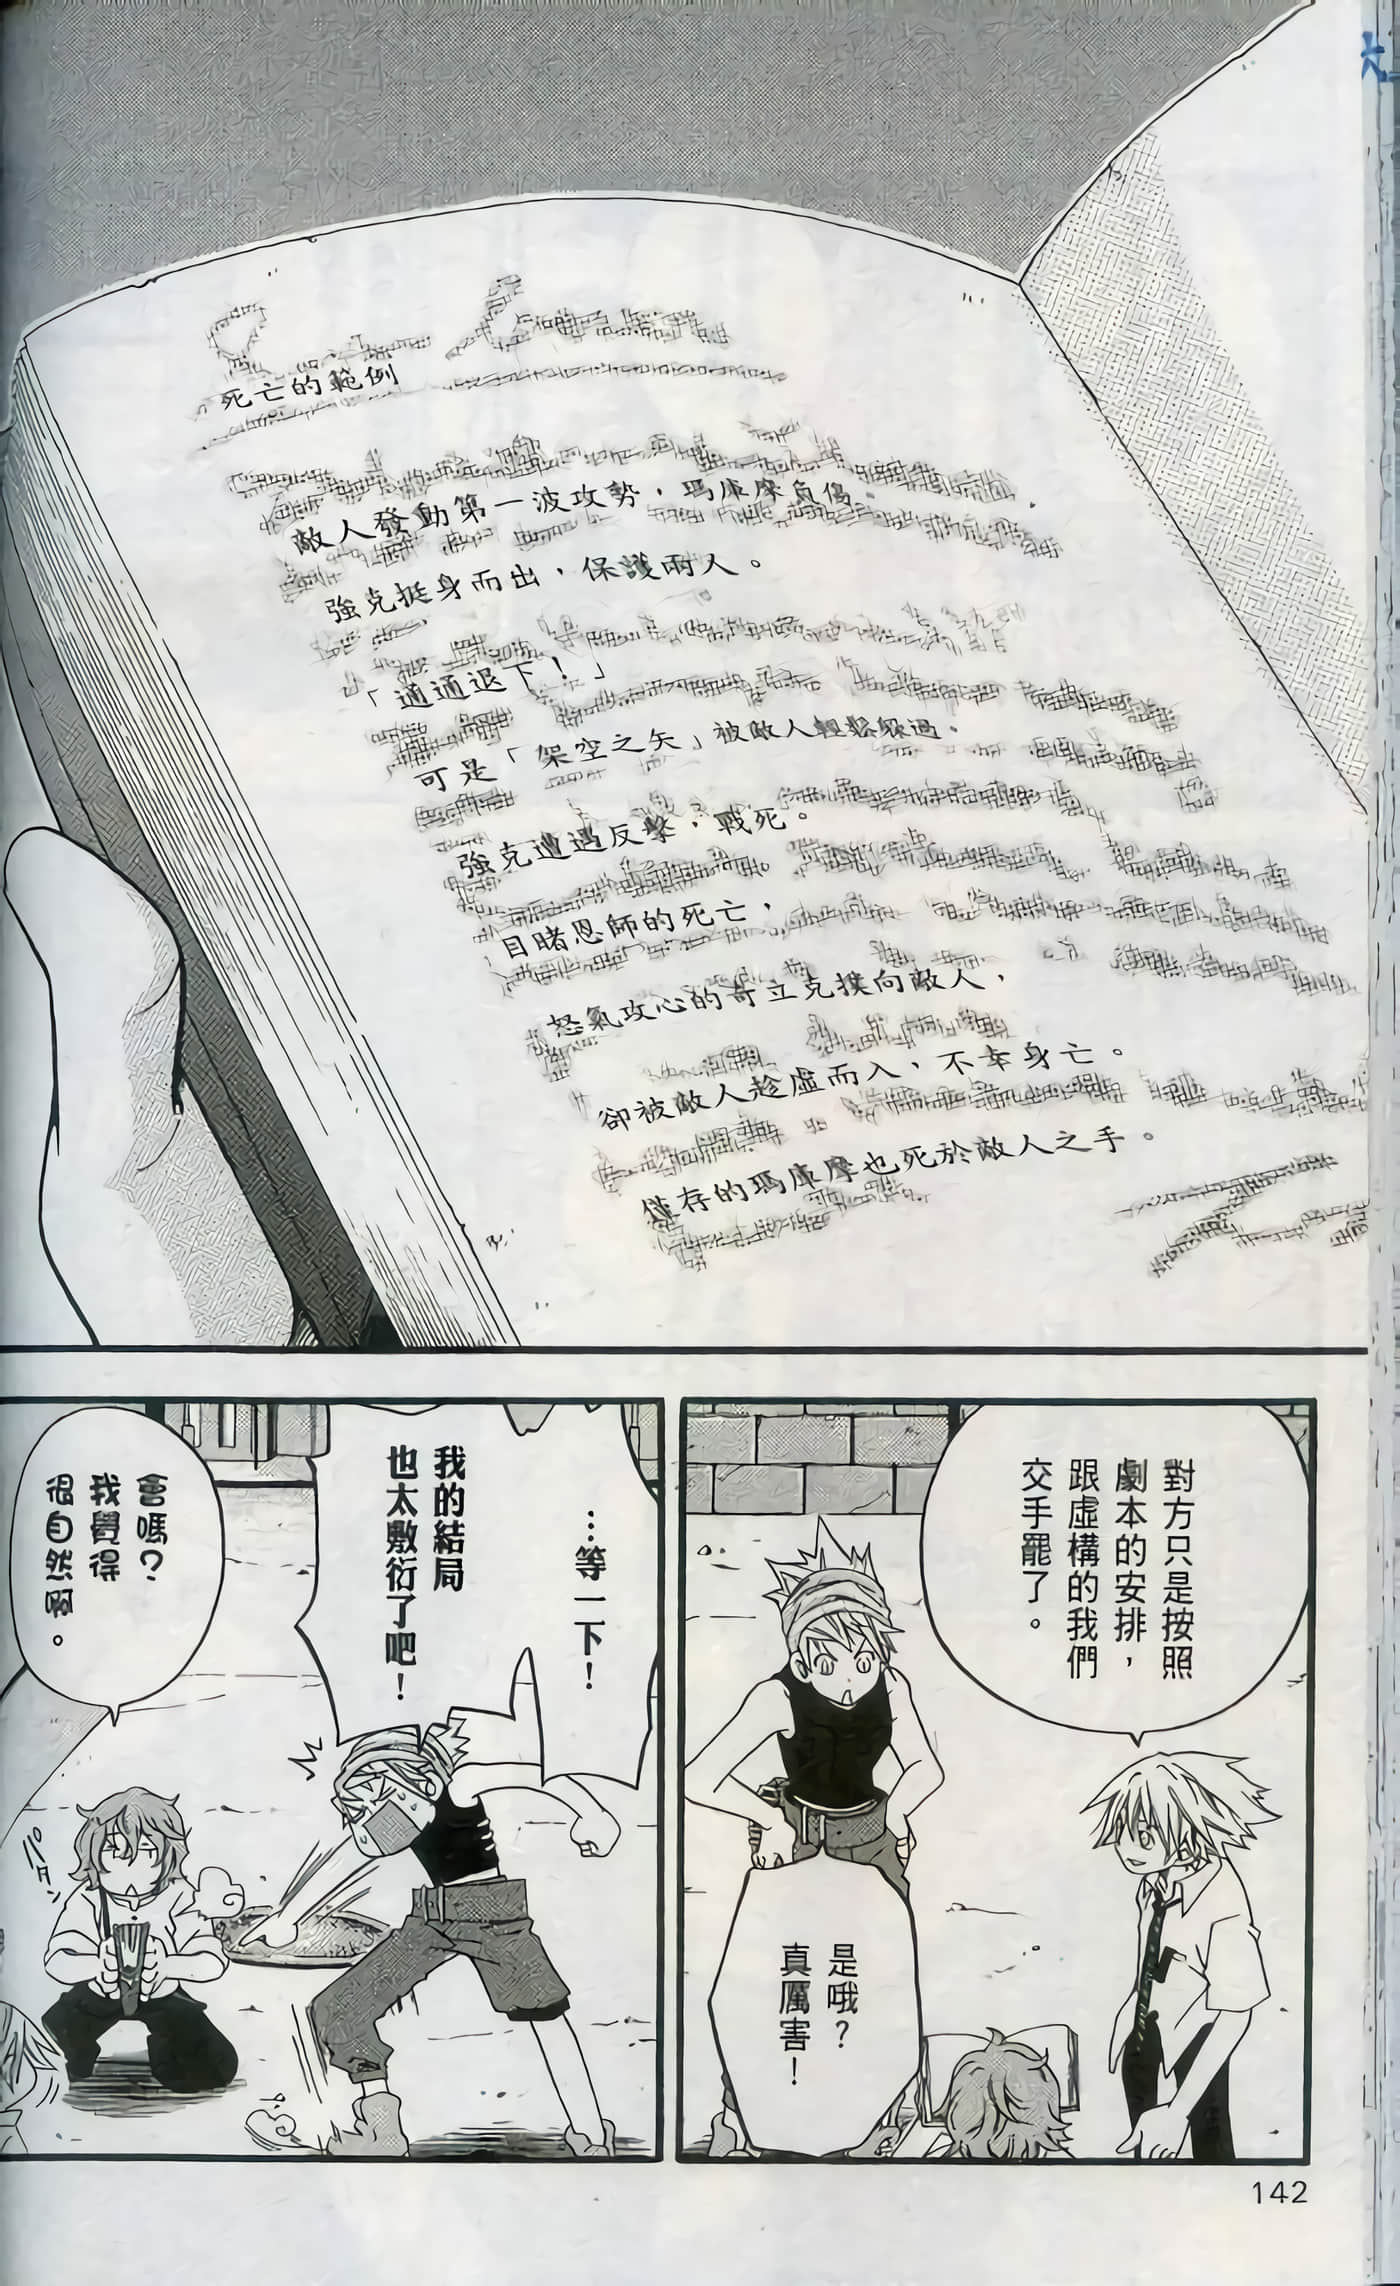 死亡的範例
敵人發動第一波攻勢，瑪庫摩負傷。
強克挺身而出，保護兩人。
「通通退下！」
可是「架空之矢」被敵人輕鬆躲過。
強克遭遇反擊，戰死。
目睹恩師的死亡，
怒氣攻心的奇立克撲向敵人，
卻被敵人趁虛而入，不幸身亡。
僅存的瑪庫摩也死於敵人之手。
對方只是按照
劇本的安排，
跟虛構的我們
交手罷了。
是哦？
真厲害！
…等一下！
我的結局
也太敷衍了吧！
會嗎？
我覺得
很自然啊。
パタン
142